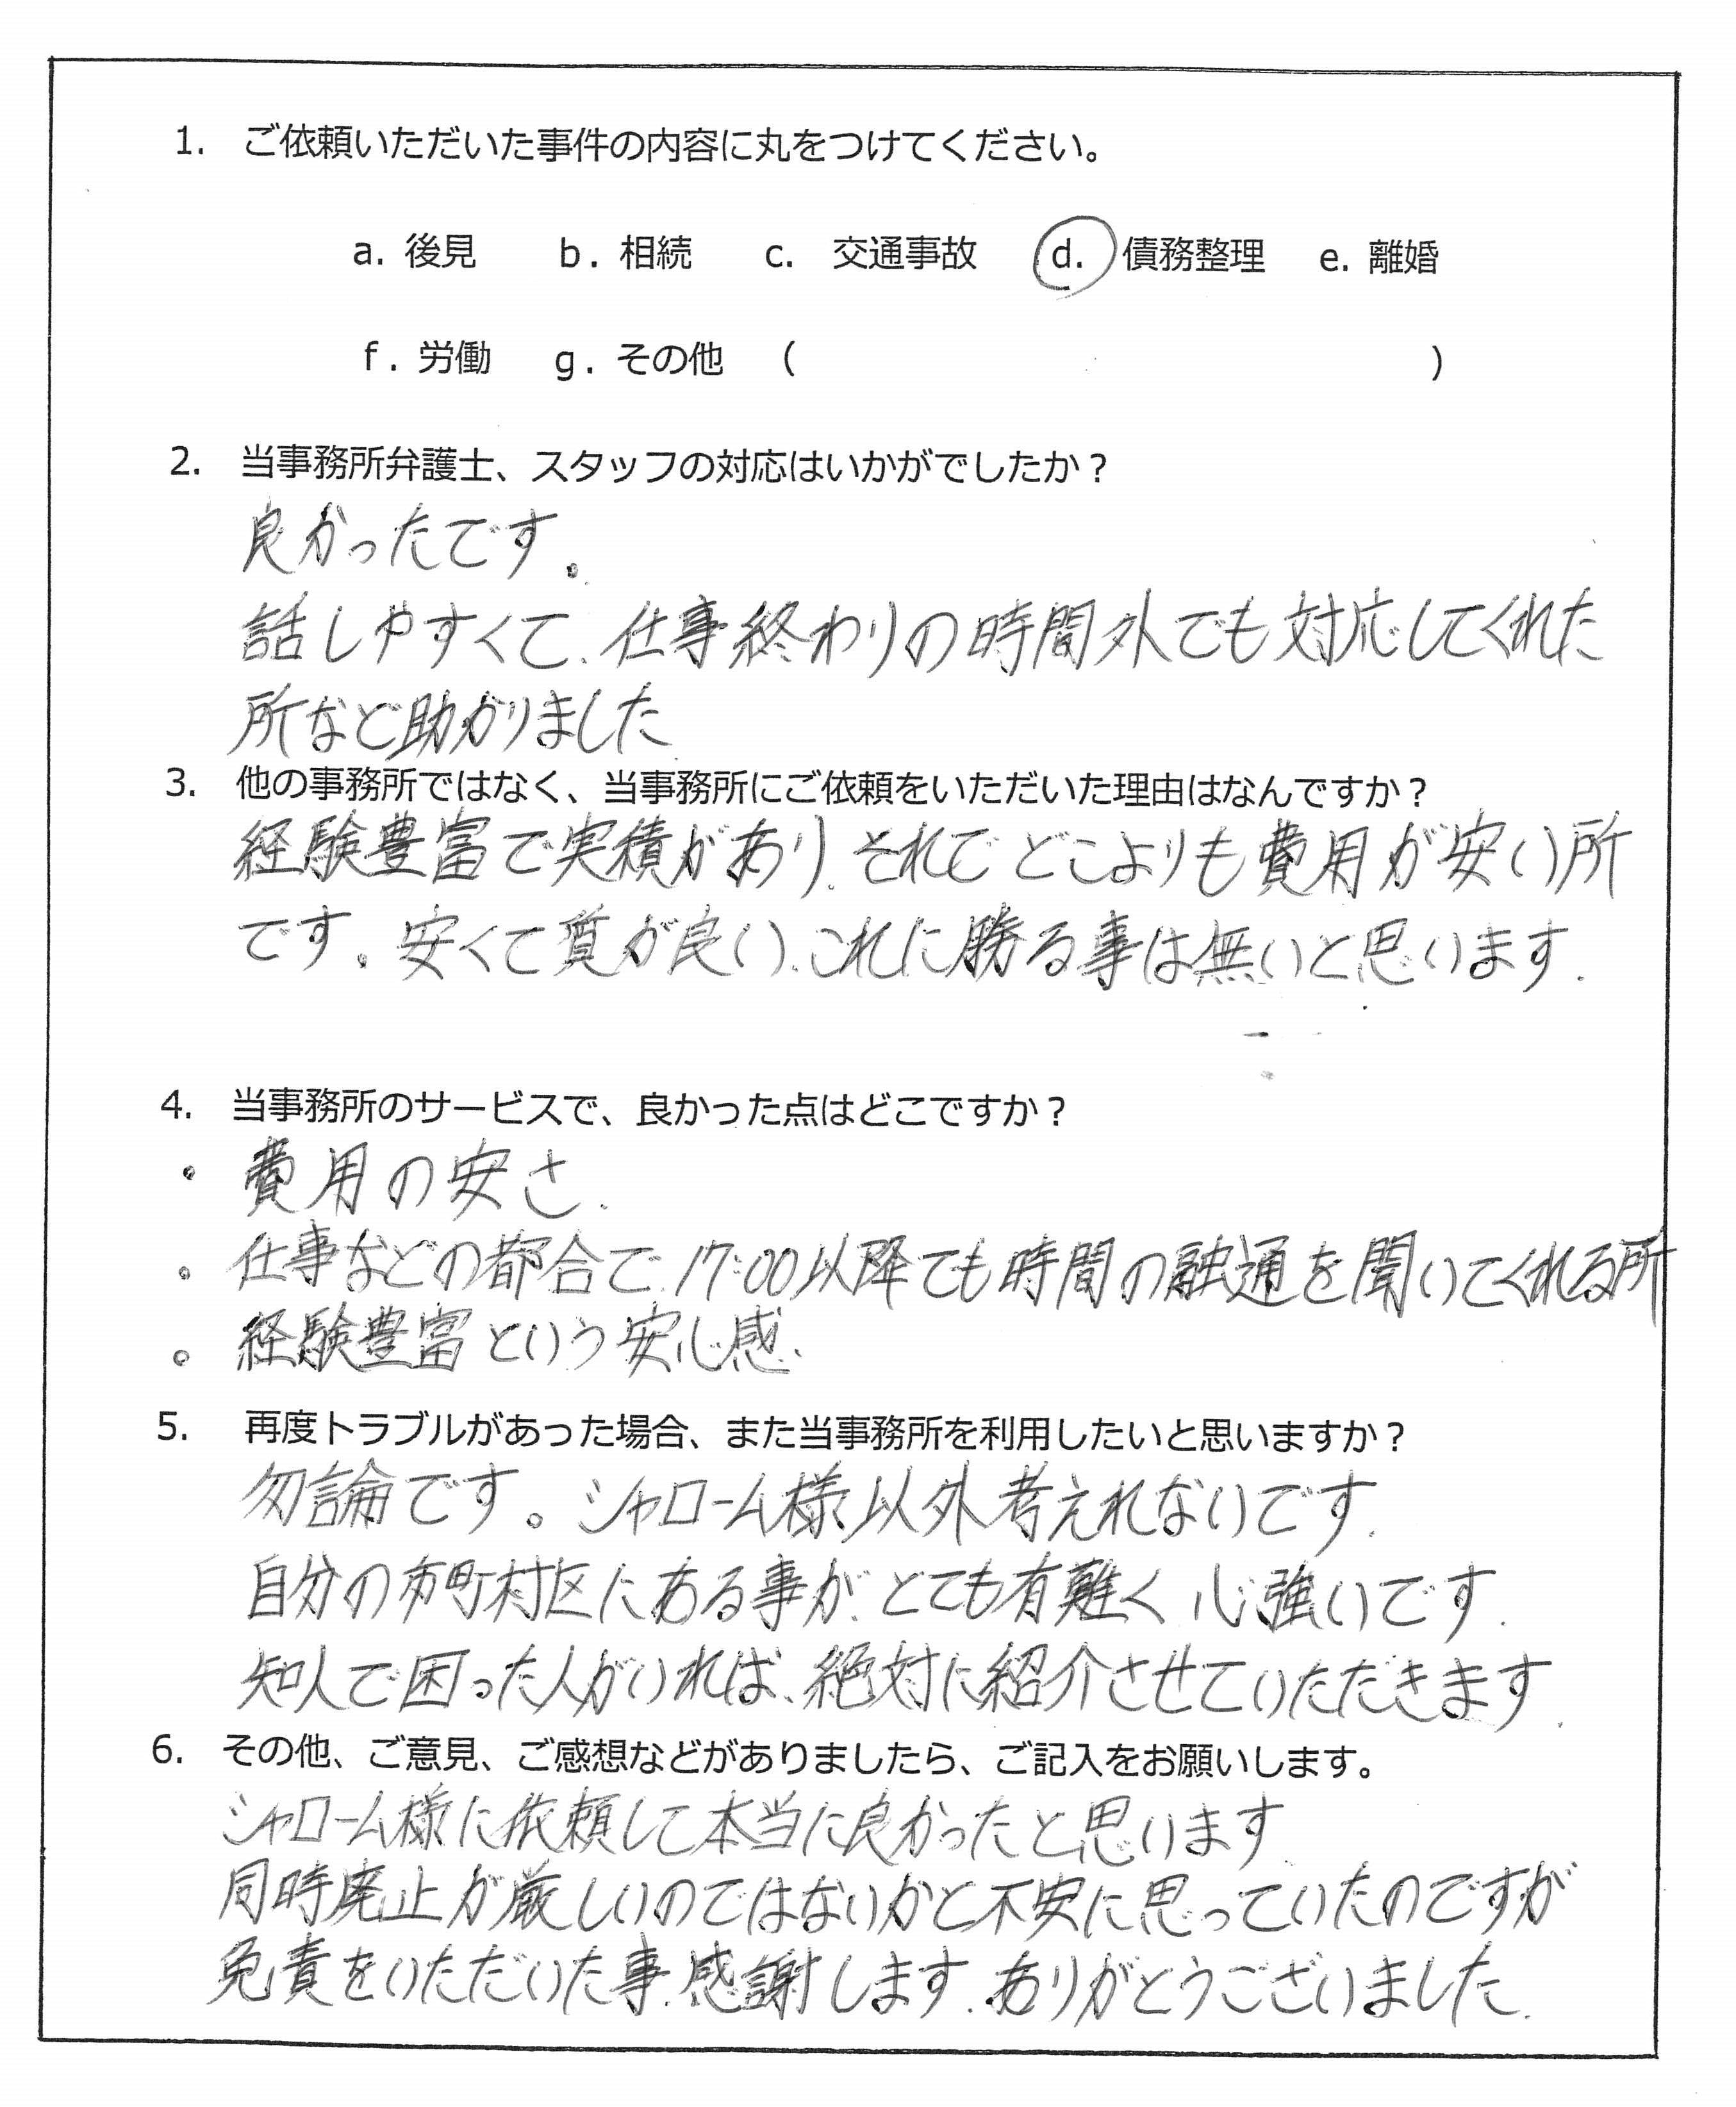 1. ご依頼いただいた事件の内容に丸をつけてください。
a. 後見 b. 相続 c. 交通事故 d. 債務整理 e. 離婚
f. 労働 g. その他 ( )
2. 当事務所弁護士、スタッフの対応はいかがでしたか？
良かったです。
話しやすくて、仕事終わりの時間外でも対応してくれた
所など助かりました
3. 他の事務所ではなく、当事務所にご依頼をいただいた理由はなんですか？
経験豊富で実績があり、それでどこよりも費用が安い所
です。安くて質が良い、これに勝る事は無いと思います.
4. 当事務所のサービスで、良かった点はどこですか？
・費用の安さ.
。仕事などの都合で、17:00以降ても時間の融通を聞いてくれる所
。経験豊富という安心感.
5. 再度トラブルがあった場合、また当事務所を利用したいと思いますか？
勿論です。シャローム様以外考えれないです.
自分の市町村区にある事が、とても有難く心強いです.
知人で困った人がいれば、絶対に紹介させていただきます.
6. その他、ご意見、ご感想などがありましたら、ご記入をお願いします。
シャローム様に依頼して本当に良かったと思います
同時廃止が厳しいのではないかと不安に思っていたのですが
免責をいただいた事.感謝します.ありがとうございました.